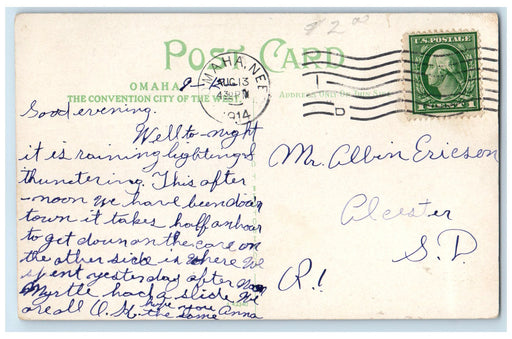 $2.00
POST CARD
U.S. POSTAGE
OMAHA
THE CONVENTION CITY OF THE WEST
ADDRESS ONLY ON THIS SIDE
OMAHA, NEB
AUG 13
430 PM
1914
Good evening.
Well to-night
it is raining lightning &
thundering. This after
-noon we have been down
town it takes half an hour
to get down on the care on
the other side is where we
spent yesterday after noon
Myrtle had a slide We
are all O.K. hope you're
the same Anna
Mr. Albin Ericson
Alcester
S. D.
R. 1